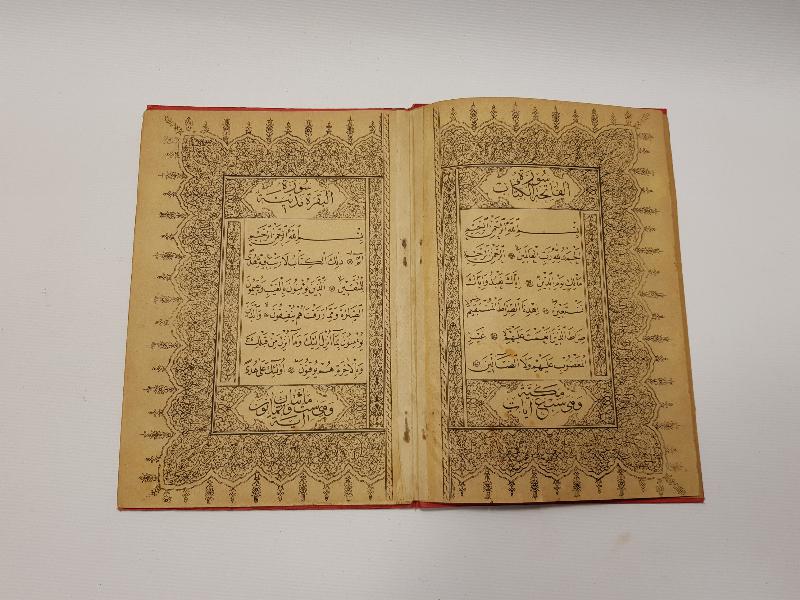 سورة
الفاتحة الكتاب
بسم الله الرحمن الرحيم
الحمد لله رب العالمين الرحمن الرحيم
مالك يوم الدين إياك نعبد وإياك
نستعين اهدنا الصراط المستقيم
صراط الذين أنعمت عليهم غير
المغضوب عليهم ولا الضالين
مكية
وهي سبع آيات
سورة
البقرة مدنية
بسم الله الرحمن الرحيم
الم ذلك الكتاب لا ريب فيه هدى
للمتقين الذين يؤمنون بالغيب ويقيمون
الصلوة ومما رزقناهم ينفقون والذين
يؤمنون بما أنزل إليك وما أنزل من قبلك
وبالآخرة هم يوقنون أولئك على هدى
مائتان
وهي ست وثمانون
آية